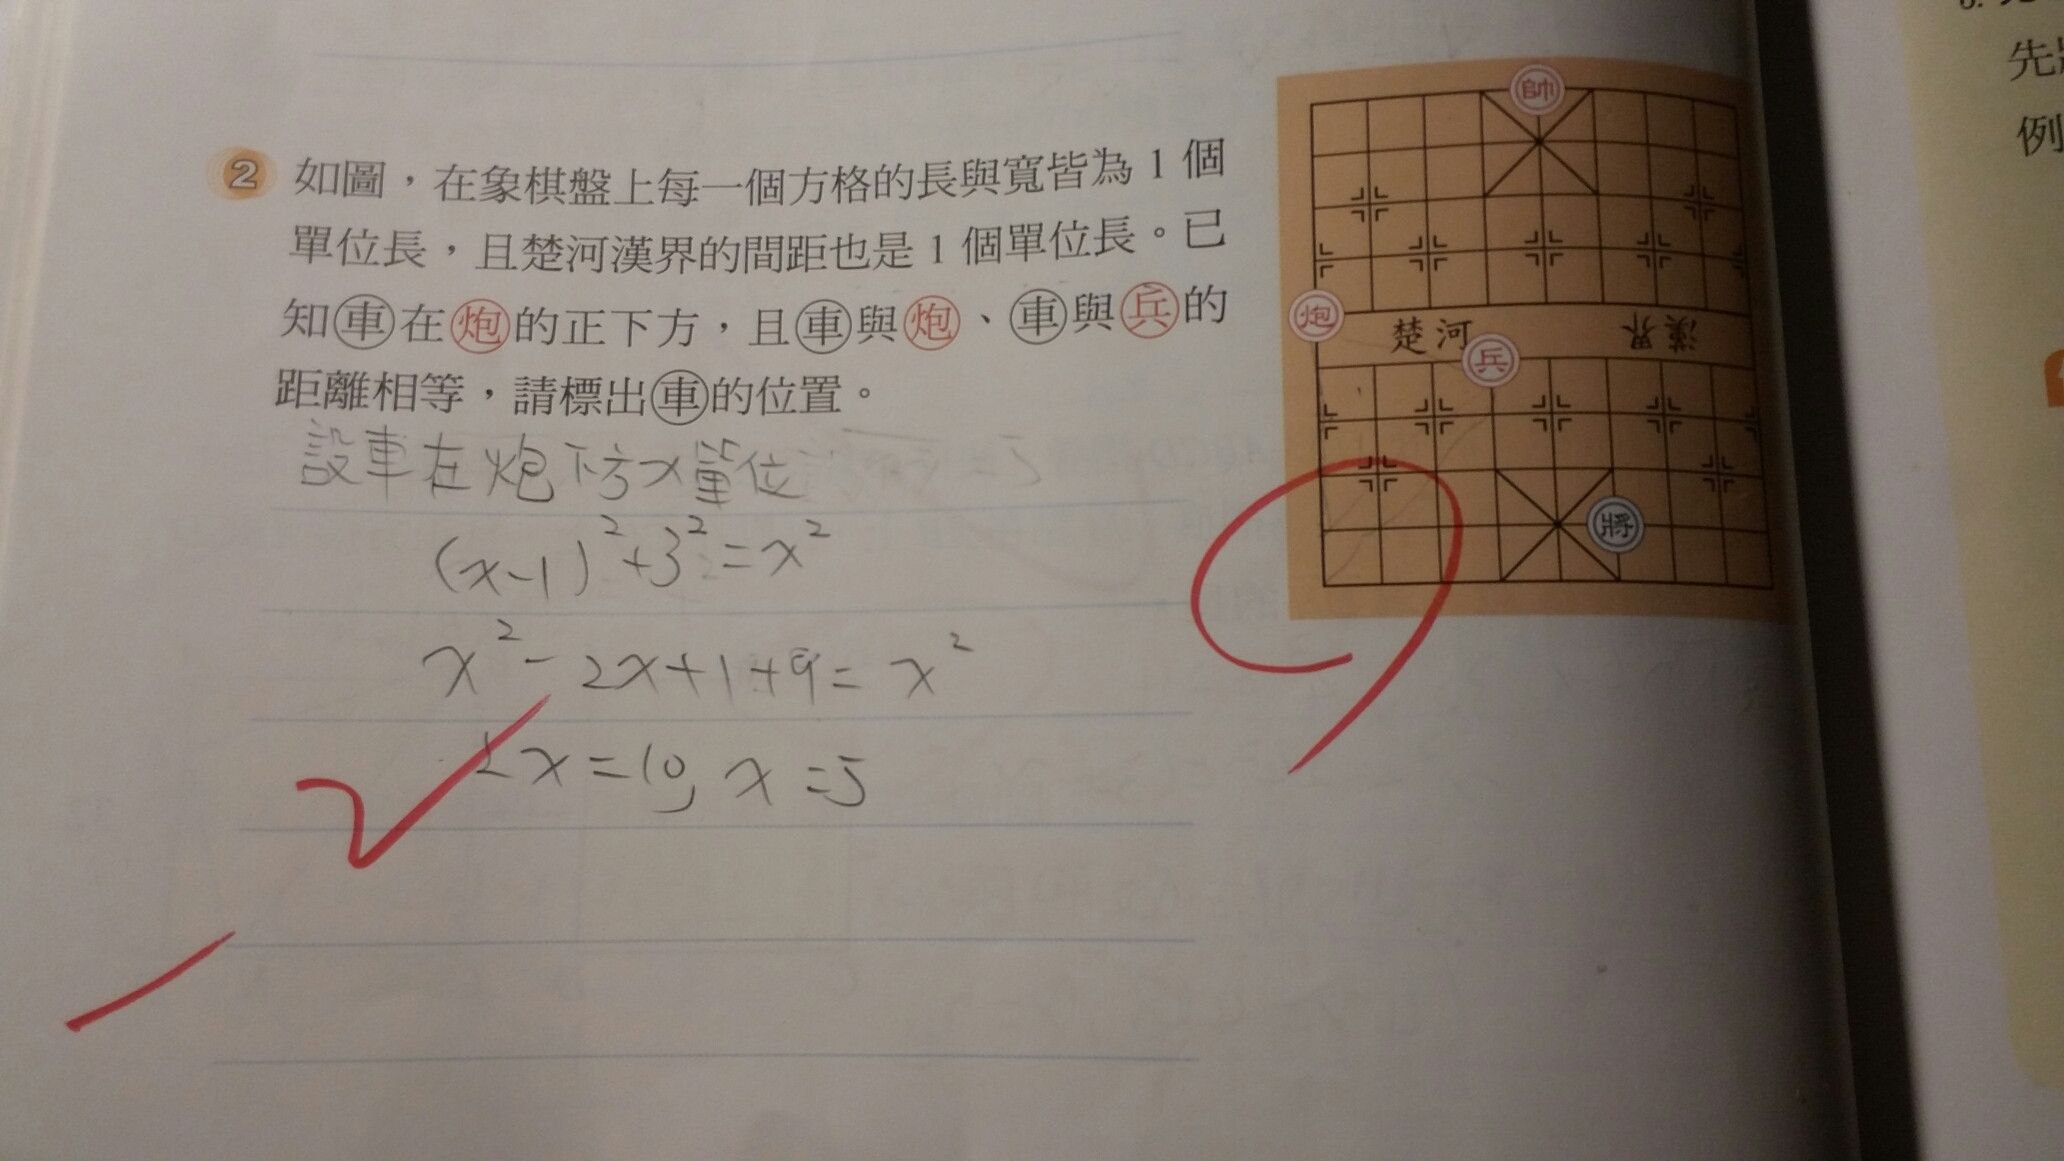 2 如圖，在象棋盤上每一個方格的長與寬皆為 1 個
單位長，且楚河漢界的間距也是 1 個單位長。已
知車在炮的正下方，且車與炮、車與兵的
距離相等，請標出車的位置。
設車在炮下方x單位
(x-1)²+3²=x²
x²-2x+1+9=x²
2x=10, x=5
帥
炮
楚河
漢界
兵
將
先
例